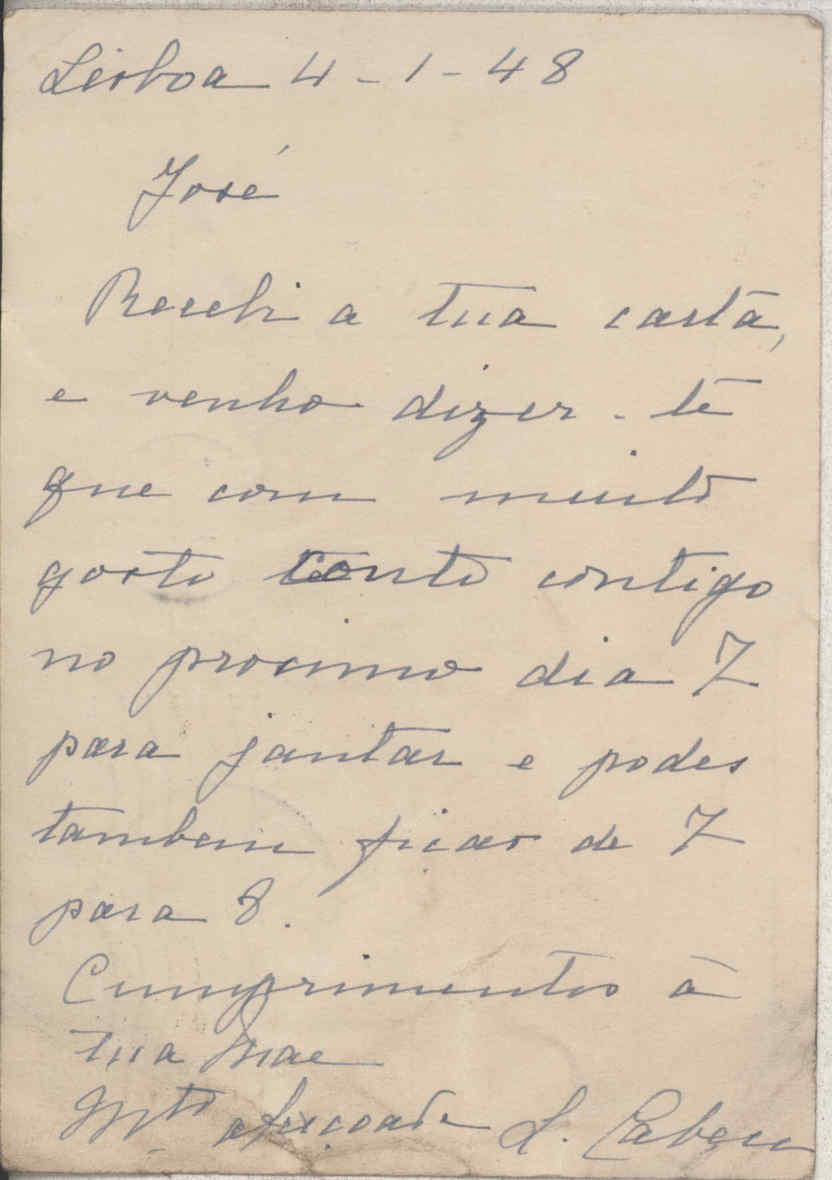 Lisboa 4-1-48
José
Recebi a tua carta,
e venho dizer-te
que com muito
gosto conto contigo
no procimo dia 7
para jantar e podes
tambem ficar de 7
para 8.
Cumprimentos à
tua mae
Mto L.